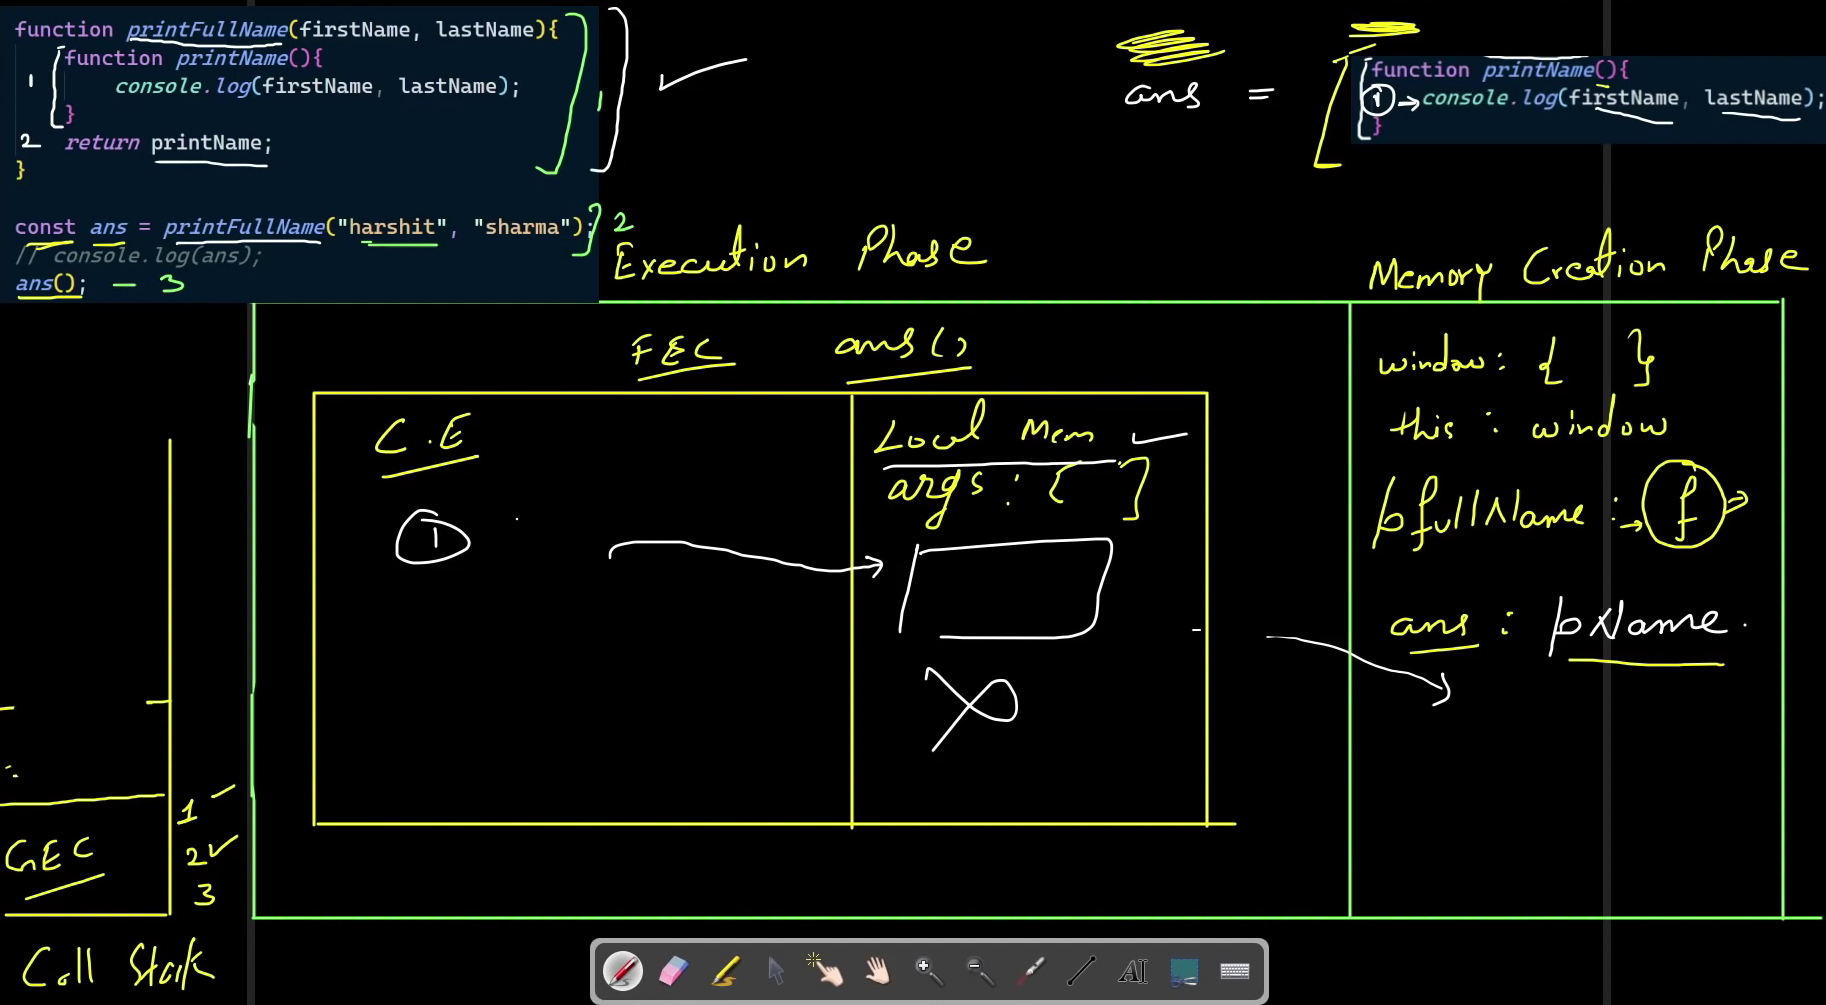 function printFullName(firstName, lastName){
1 function printName(){
console.log(firstName, lastName);
}
2 return printName;
}
1
const ans = printFullName("harshit", "sharma"); 2
// console.log(ans);
ans(); — 3
ans =
function printName(){
1 → console.log(firstName, lastName);
}
Execution Phase
Memory Creation Phase
FEC ans()
C.E
1
Local Mem
args : [ ]
window : { }
this : window
pfullName : → f
ans : pName.
1
2
3
GEC
Call Stack
AI